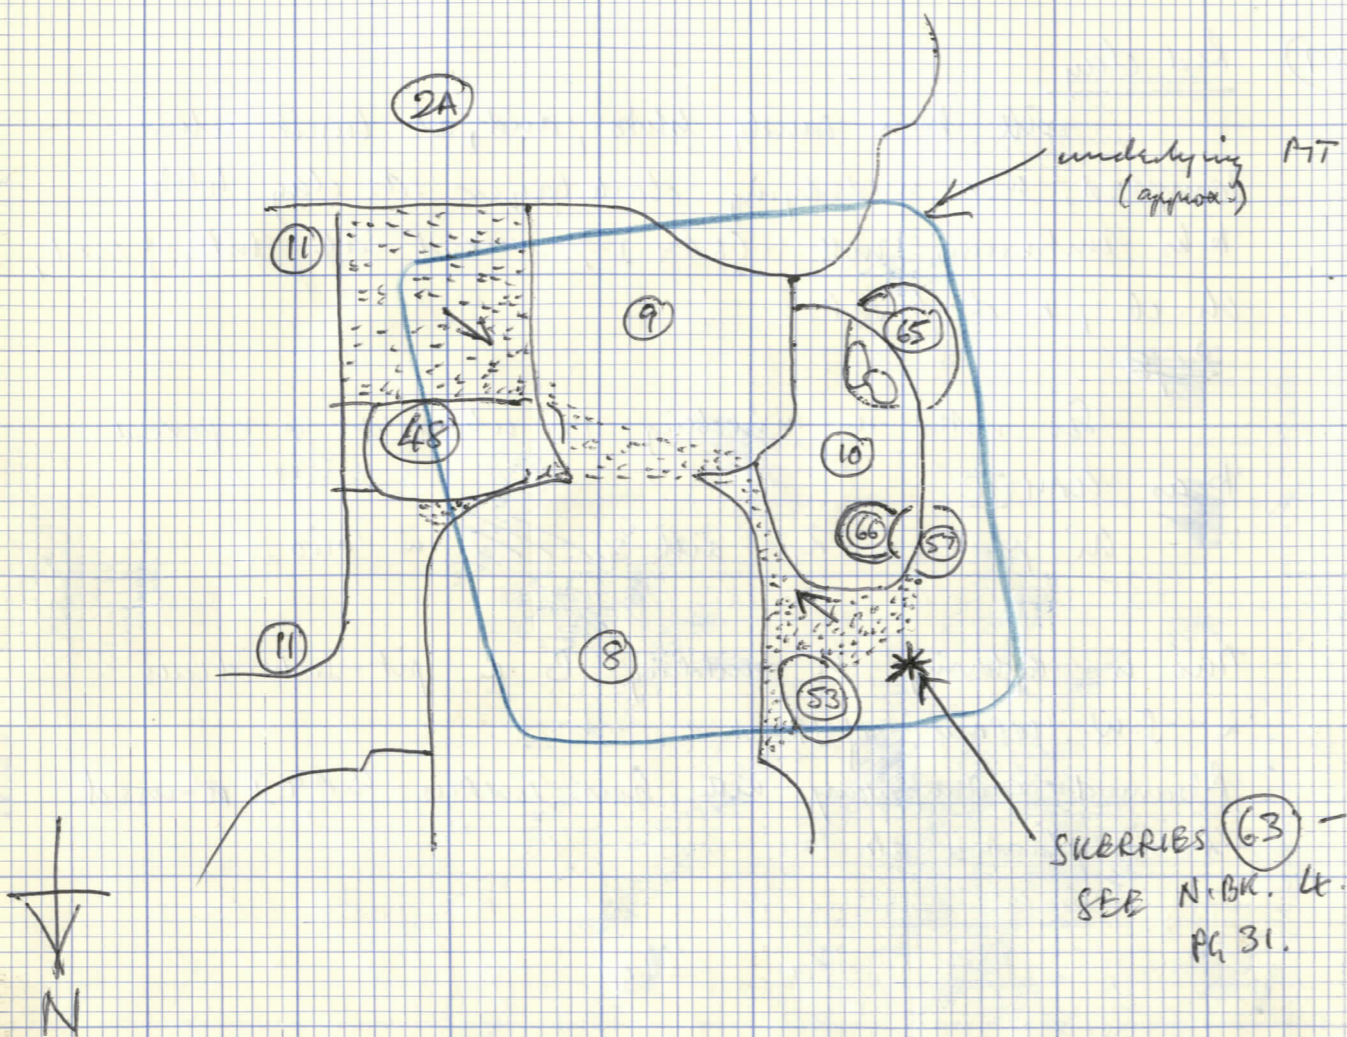 2A
underlying PIT
(approx.)
11
9
65
48
10
66
57
11
8
53
SKERRIES 63 -
SEE N.BK. 4.
PG 31.
N